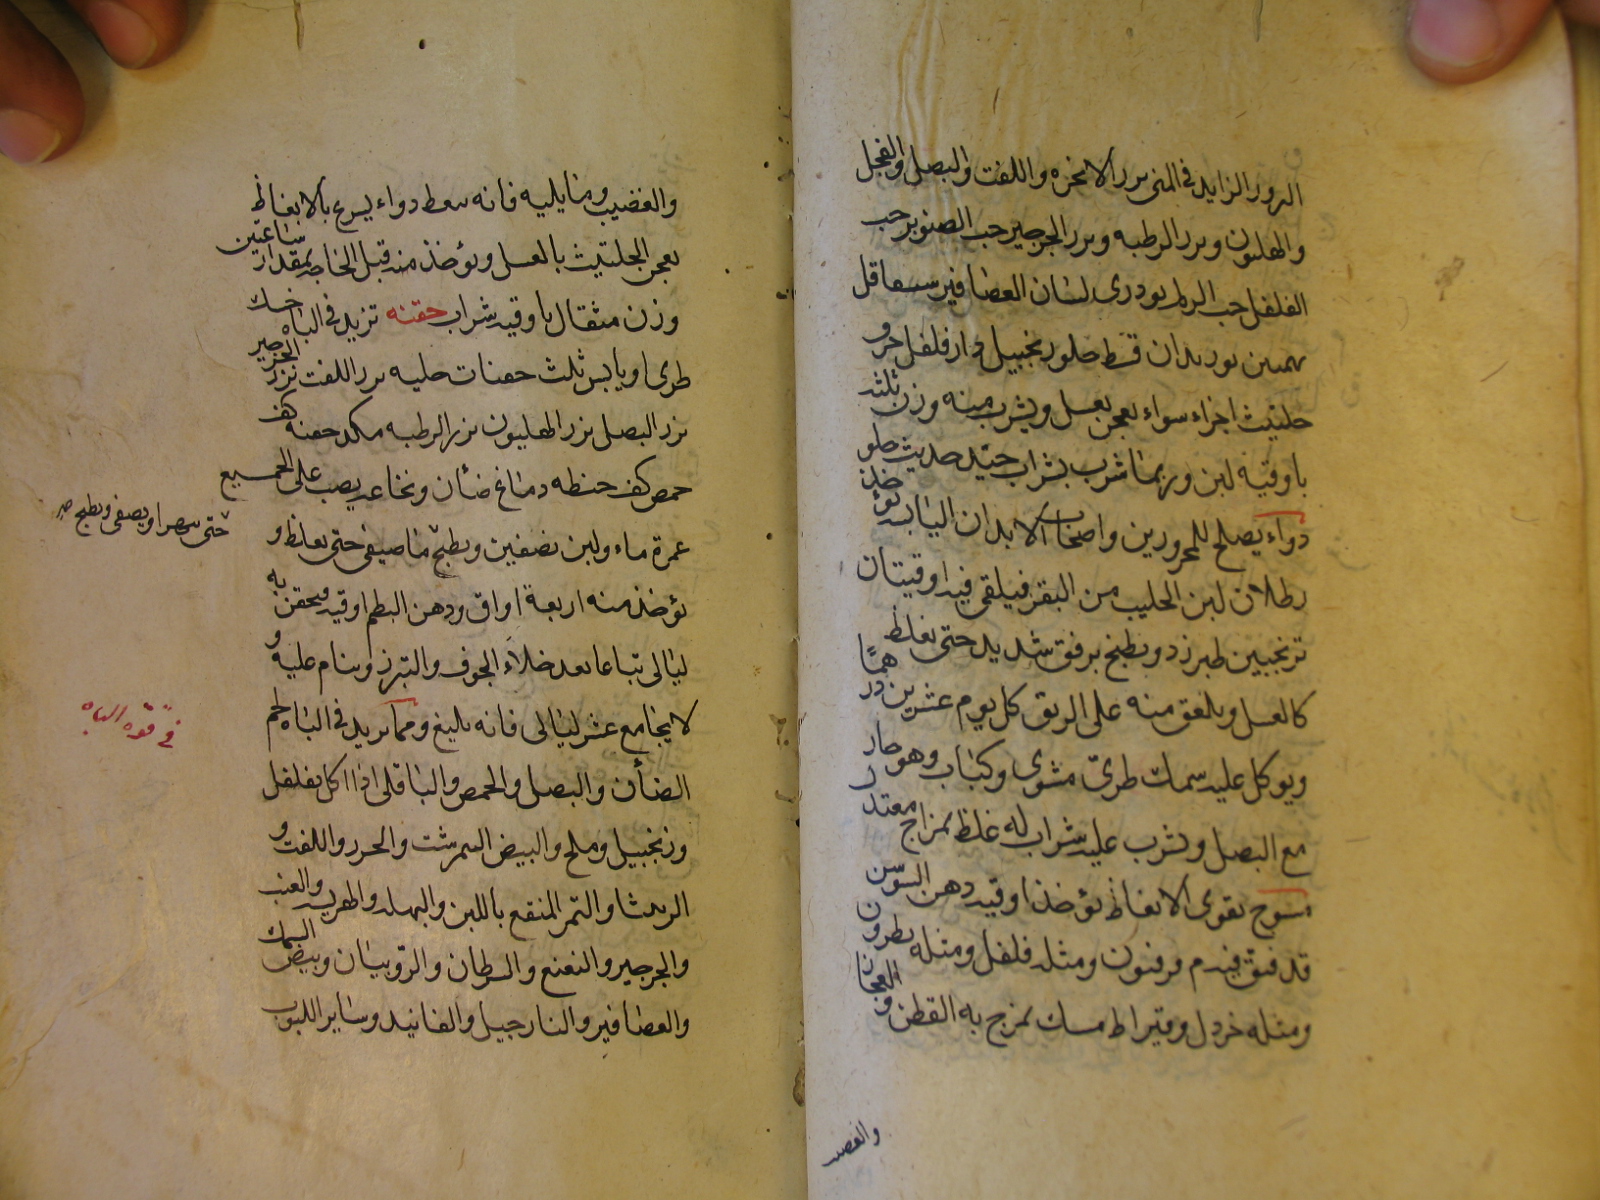 البزور الزايده في المنى بزر الانجره واللفت والبصل والفجل
والهليون وبزر الرطبه وبزر الجرجير حب الصنوبر حب
الفلفل حب الزلم بودرى لسان العصافير سعاقل
بهمنين بوزيدان قسط حلو زنجبيل دار فلفل حرف
حلتيت اجزاء سواء يعجن بعسل ويشرب منه وزن ثلثه
باوقيه لبن وربما شرب بشراب جيد حديث حلو
دواء يصلح للمحرورين واصحاب الابدان اليابسه يؤخذ
رطلان لبن الحليب من البقر فيلقى فيه اوقيتان
ترنجبين طبرزد ويطبخ برفق شديد حتى يغلظ
كالعسل ويلعق منه على الريق كل يوم عشرين درهمًا
ويوكل عليه سمك طرىّ مشوى وكباب وهو حار
مع البصل ويشرب عليه شراب له غلظ بمزاج معتدل
مسوح يقوى الانعاظ يؤخذ اوقيه دهن السوسن
قد فتق فيه م فرفيون ومثله فلفل ومثله بطرون
ومثله خردل وقيراط مسك يمزج به القطن و العجان
والقضيب
والقضيب وما يليه فانه ينعظ دواء يسرع بالانعاظ
يعجن الحلتيث بالعسل ويؤخذ منه قبل الحاجه بمقدار ساعتين
وزن مثقال باوقيه شراب حقنه تزيد في الباه حسك
طرى او يابس ثلث حفنات حلبه بزر اللفت بزر الجرجير
بزر البصل بزر الهليون بزر الرطبه مكد حفنه كف
حمص كف حنطه دماغ ضأن ونخاعه يصب على الجميع
غمرة ماء ولبن نصفين ويطبخ ما صيفى حتى يغلظ و
حتى يتهرا ويصفى ويطبخ صح
يؤخذ منه اربعة اواق ودهن البطم اوقيه ويحقن به
ليالى تباعا بعد خلاء الجوف والتبرز وينام عليه و
لا يجامع عشر ليالى فانه بليغ ومما يزيد في الباه لحم
في قوه الباه
الضأن والبصل والحمص والباقلى اذا اكل بفلفل
وزنجبيل وملح والبيض النيمرشت والجزر واللفت و
الربيثا والتمر المنقع باللبن والبهلط والهريسه والعنب
والجرجير والنعنع والسرطان والروبيان وبيض السمك
والعصافير والنارجيل والفانيد وساير اللبوب